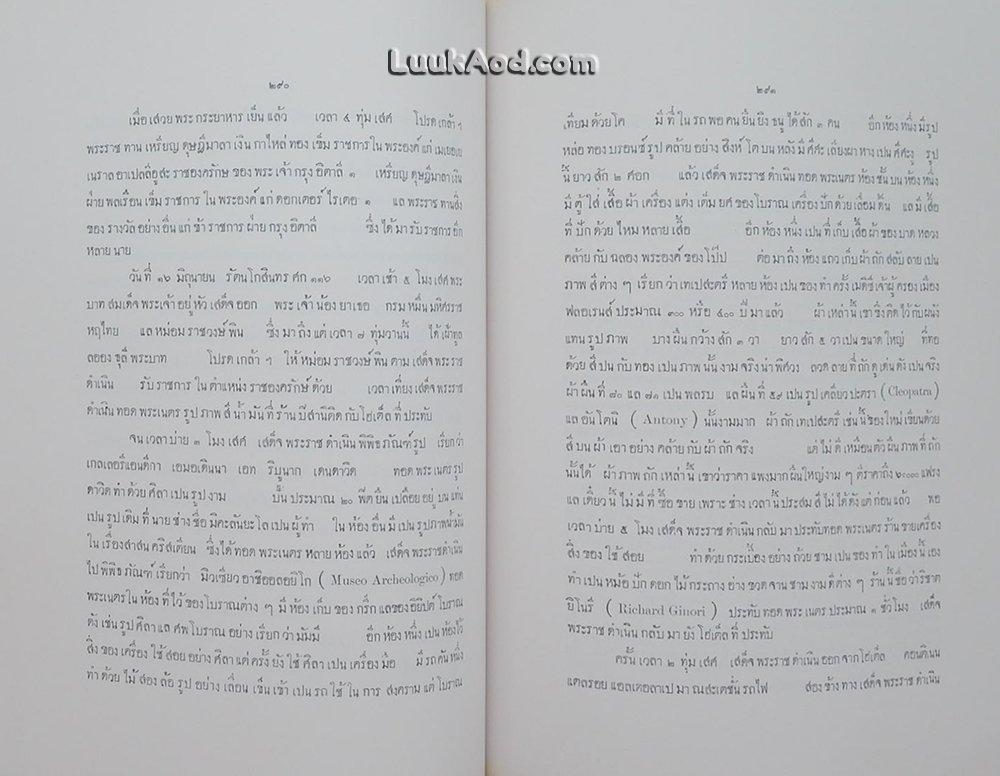 LuukAod.com
๒๙๐
เมื่อเสวย พระ กระยาหาร เย็น แล้ว เวลา ๔ ทุ่ม เสศ โปรด เกล้า ฯ
พระราช ทาน เหรียญ ดุษฎีมาลา เงิน กาไหล่ ทอง เข็ม ราชการ ใน พระองค์ แก่ เมเยอเย
เนราล อาเปลลิอูสะ ราชองครักษ ของ พระ เจ้า กรุง อิตาลี ๑ เหรียญ ดุษฎีมาลา เงิน
ฝ่าย พลเรือน เข็ม ราชการ ใน พระองค์ แก่ ดอกเตอร์ ไรเตอ ๑ แล พระราช ทาน สิ่ง
ของ รางวัล อย่าง อื่น แก่ ข้า ราชการ ฝ่าย กรุง อิตาลี ซึ่ง ได้ มา รับ ราชการ อีก
หลาย นาย
วัน ที่ ๑๖ มิถุนายน รัตน โกสินทร ศก ๑๑๖ เวลา เช้า ๕ โมง เสศ พระ
บาท สมเด็จ พระเจ้า อยู่ หัว เสด็จ ออก พระ เจ้า น้อง ยาเธอ กรม หมื่น มหิศรราช
หฤไทย แล หม่อม ราชวงษ์ พิน ซึ่ง มา ถึง แต่ เวลา ๗ ทุ่ม วาน นี้ ได้ เฝ้า ทูล
ลออง ธุลี พระบาท โปรด เกล้า ฯ ให้ หม่อม ราชวงษ์ พิน ตาม เสด็จ พระราช
ดำเนิน รับ ราชการ ใน ตำแหน่ง ราชองครักษ์ ด้วย เวลา เที่ยง เสด็จ พระราช
ดำเนิน ทอด พระเนตร รูป ภาพ สี น้ำ มัน ที่ ร้าน ปีสาน ติด กับ โฮเต็ล ที่ ประทับ
จน เวลา บ่าย ๓ โมง เสศ เสด็จ พระราช ดำเนิน พิพิธ ภัณฑ์ รูป เรียก ว่า
เกลเลอรี แอนติกา เอมอเดินนา เอท ริบูนาก เดนดาวิด ทอด พระ เนตร รูป
ดาวิด ทำ ด้วย ศิลา เปน รูป งาม ปั้น ประมาณ ๒๐ ฟีต ยืน เปลือย อยู่ บน แท่น
เปน รูป เดิม ที่ นาย ช่าง ชื่อ มิคะลันยะโล เปน ผู้ ทำ ใน ห้อง อื่น มี เปน รูป ภาพ น้ำมัน
ใน เรื่อง สาสน คริสเตียน ซึ่ง ได้ ทอด พระเนตร หลาย ห้อง แล้ว เสด็จ พระราช ดำเนิน
ไป พิพิธ ภัณฑ์ เรียก ว่า มิวเซียว อาชิออลอยิโก ( Museo Archeologico ) ทอด
พระเนตร ใน ห้อง ที่ ไว้ ของ โบราณ ต่าง ๆ มี ห้อง เก็บ ของ กรีก แล ของ อิยิปต์ โบราณ
ดัง เช่น รูป ศิลา แล ศพ โบราณ อย่าง เรียก ว่า มัมมี อีก ห้อง หนึ่ง เปน ห้อง ไว้
สิ่ง ของ เครื่อง ใช้ สอย อย่าง ศิลา แต่ ครั้ง ยัง ใช้ ศิลา เปน เครื่อง มือ มี รถ คัน หนึ่ง
ทำ ด้วย ไม้ สอง ล้อ รูป อย่าง เลื่อน เข็น เข้า เปน รถ ใช้ ใน การ สงคราม แต่ โบราณ
๒๙๑
เทียม ด้วย โค มี ที่ ใน รถ พอ คน ยืน ยิง ธนู ได้ สัก ๓ คน อีก ห้อง หนึ่ง มี รูป
หล่อ ทอง บรอนซ์ รูป คล้าย อย่าง สิงห์ โต บน หลัง มี ศีศะ เลียงผา หาง เปน ศีศะ งู รูป
นี้ ยาว สัก ๒ ศอก แล้ว เสด็จ พระราช ดำเนิน ทอด พระเนตร ห้อง ชั้น บน ห้อง หนึ่ง
มี ตู้ ใส่ เสื้อ ผ้า เครื่อง แต่ง เต็ม ยศ ของ โบราณ เครื่อง ปัก ด้วย เลื่อม ดิ้น แล มี เสื้อ
ที่ ปัก ด้วย ไหม หลาย เสื้อ อีก ห้อง หนึ่ง เปน ที่ เก็บ เสื้อ ผ้า ของ บาด หลวง
คล้าย กับ ฉลอง พระองค์ ของ โป๊ป ต่อ มา ถึง ห้อง แถว เก็บ ผ้า ถัก สลับ ลาย เปน
ภาพ สี ต่าง ๆ เรียก ว่า เทเปสะตรี หลาย ห้อง เปน ของ ทำ ครั้ง เมดิซี เจ้า ผู้ ครอง เมือง
ฟลอเรนส์ ประมาณ ๓๐๐ หรือ ๔๐๐ ปี มา แล้ว ผ้า เหล่า นี้ เขา ซึ่ง ติด ไว้ กับ ผนัง
แทน รูป ภาพ บาง ผืน กว้าง สัก ๓ วา ยาว สัก ๕ วา เปน ขนาด ใหญ่ ที่ ทอ
ด้วย สี ปน กับ ทอง เปน ภาพ นั้น งาม จริง น่า พิศวง ลวด ลาย ที่ ถัก ดู เด่น ดัง เปน จริง
ผ้า ผืน ที่ ๗๐ แล ๗๑ เปน พลรบ แล ผืน ที่ ๕๙ เปน รูป เคลียวปะตรา (Cleopatra)
แล อันโตนิ ( Antony ) นั้น งาม มาก ผ้า ถัก เทเปสะตรี เช่น นี้ ของ ใหม่ เขียน ด้วย
สี บน ผ้า เอา อย่าง คล้าย กับ ผ้า ถัก จริง แต่ ไม่ ดี เหมือน ตัว ผืน ภาพ ที่ ถัก
นั้น ได้ ผ้า ภาพ ถัก เหล่า นี้ เขา ว่า ราคา แพง มาก ผืน ใหญ่ งาม ๆ ตี ราคา ถึง ๖๐๐๐๐ แฟรง
แล เดี๋ยว นี้ ไม่ มี ที่ ซื้อ ขาย เพราะ ช่าง เวลา นี้ ประสม สี ไม่ ได้ ดัง แต่ ก่อน แล้ว พอ
เวลา บ่าย ๕ โมง เสด็จ พระราช ดำเนิน กลับ มา ประทับ ทอด พระเนตร ร้าน ขาย เครื่อง
สิ่ง ของ ใช้ สอย ทำ ด้วย กระเบื้อง อย่าง ถ้วย ชาม เปน ของ ทำ ใน เมือง นี้ เอง
ทำ เปน หม้อ ปัก ดอก ไม้ กระถาง อ่าง ขวด จาน ชาม งาม ดี ต่าง ๆ ร้าน นี้ ชื่อ ว่า ริชาด
ยิโนรี ( Richard Ginori ) ประทับ ทอด พระ เนตร ประมาณ ๑ ชั่ว โมง เสด็จ
พระราช ดำเนิน กลับ มา ยัง โฮเต็ล ที่ ประทับ
ครั้น เวลา ๒ ทุ่ม เสศ เสด็จ พระราช ดำเนิน ออก จาก โฮเต็ล คอนติเนน
แตลรอย แอลเดอลาเป มา ณ สะเตชั่น รถไฟ สอง ข้าง ทาง เสด็จ พระราช ดำเนิน